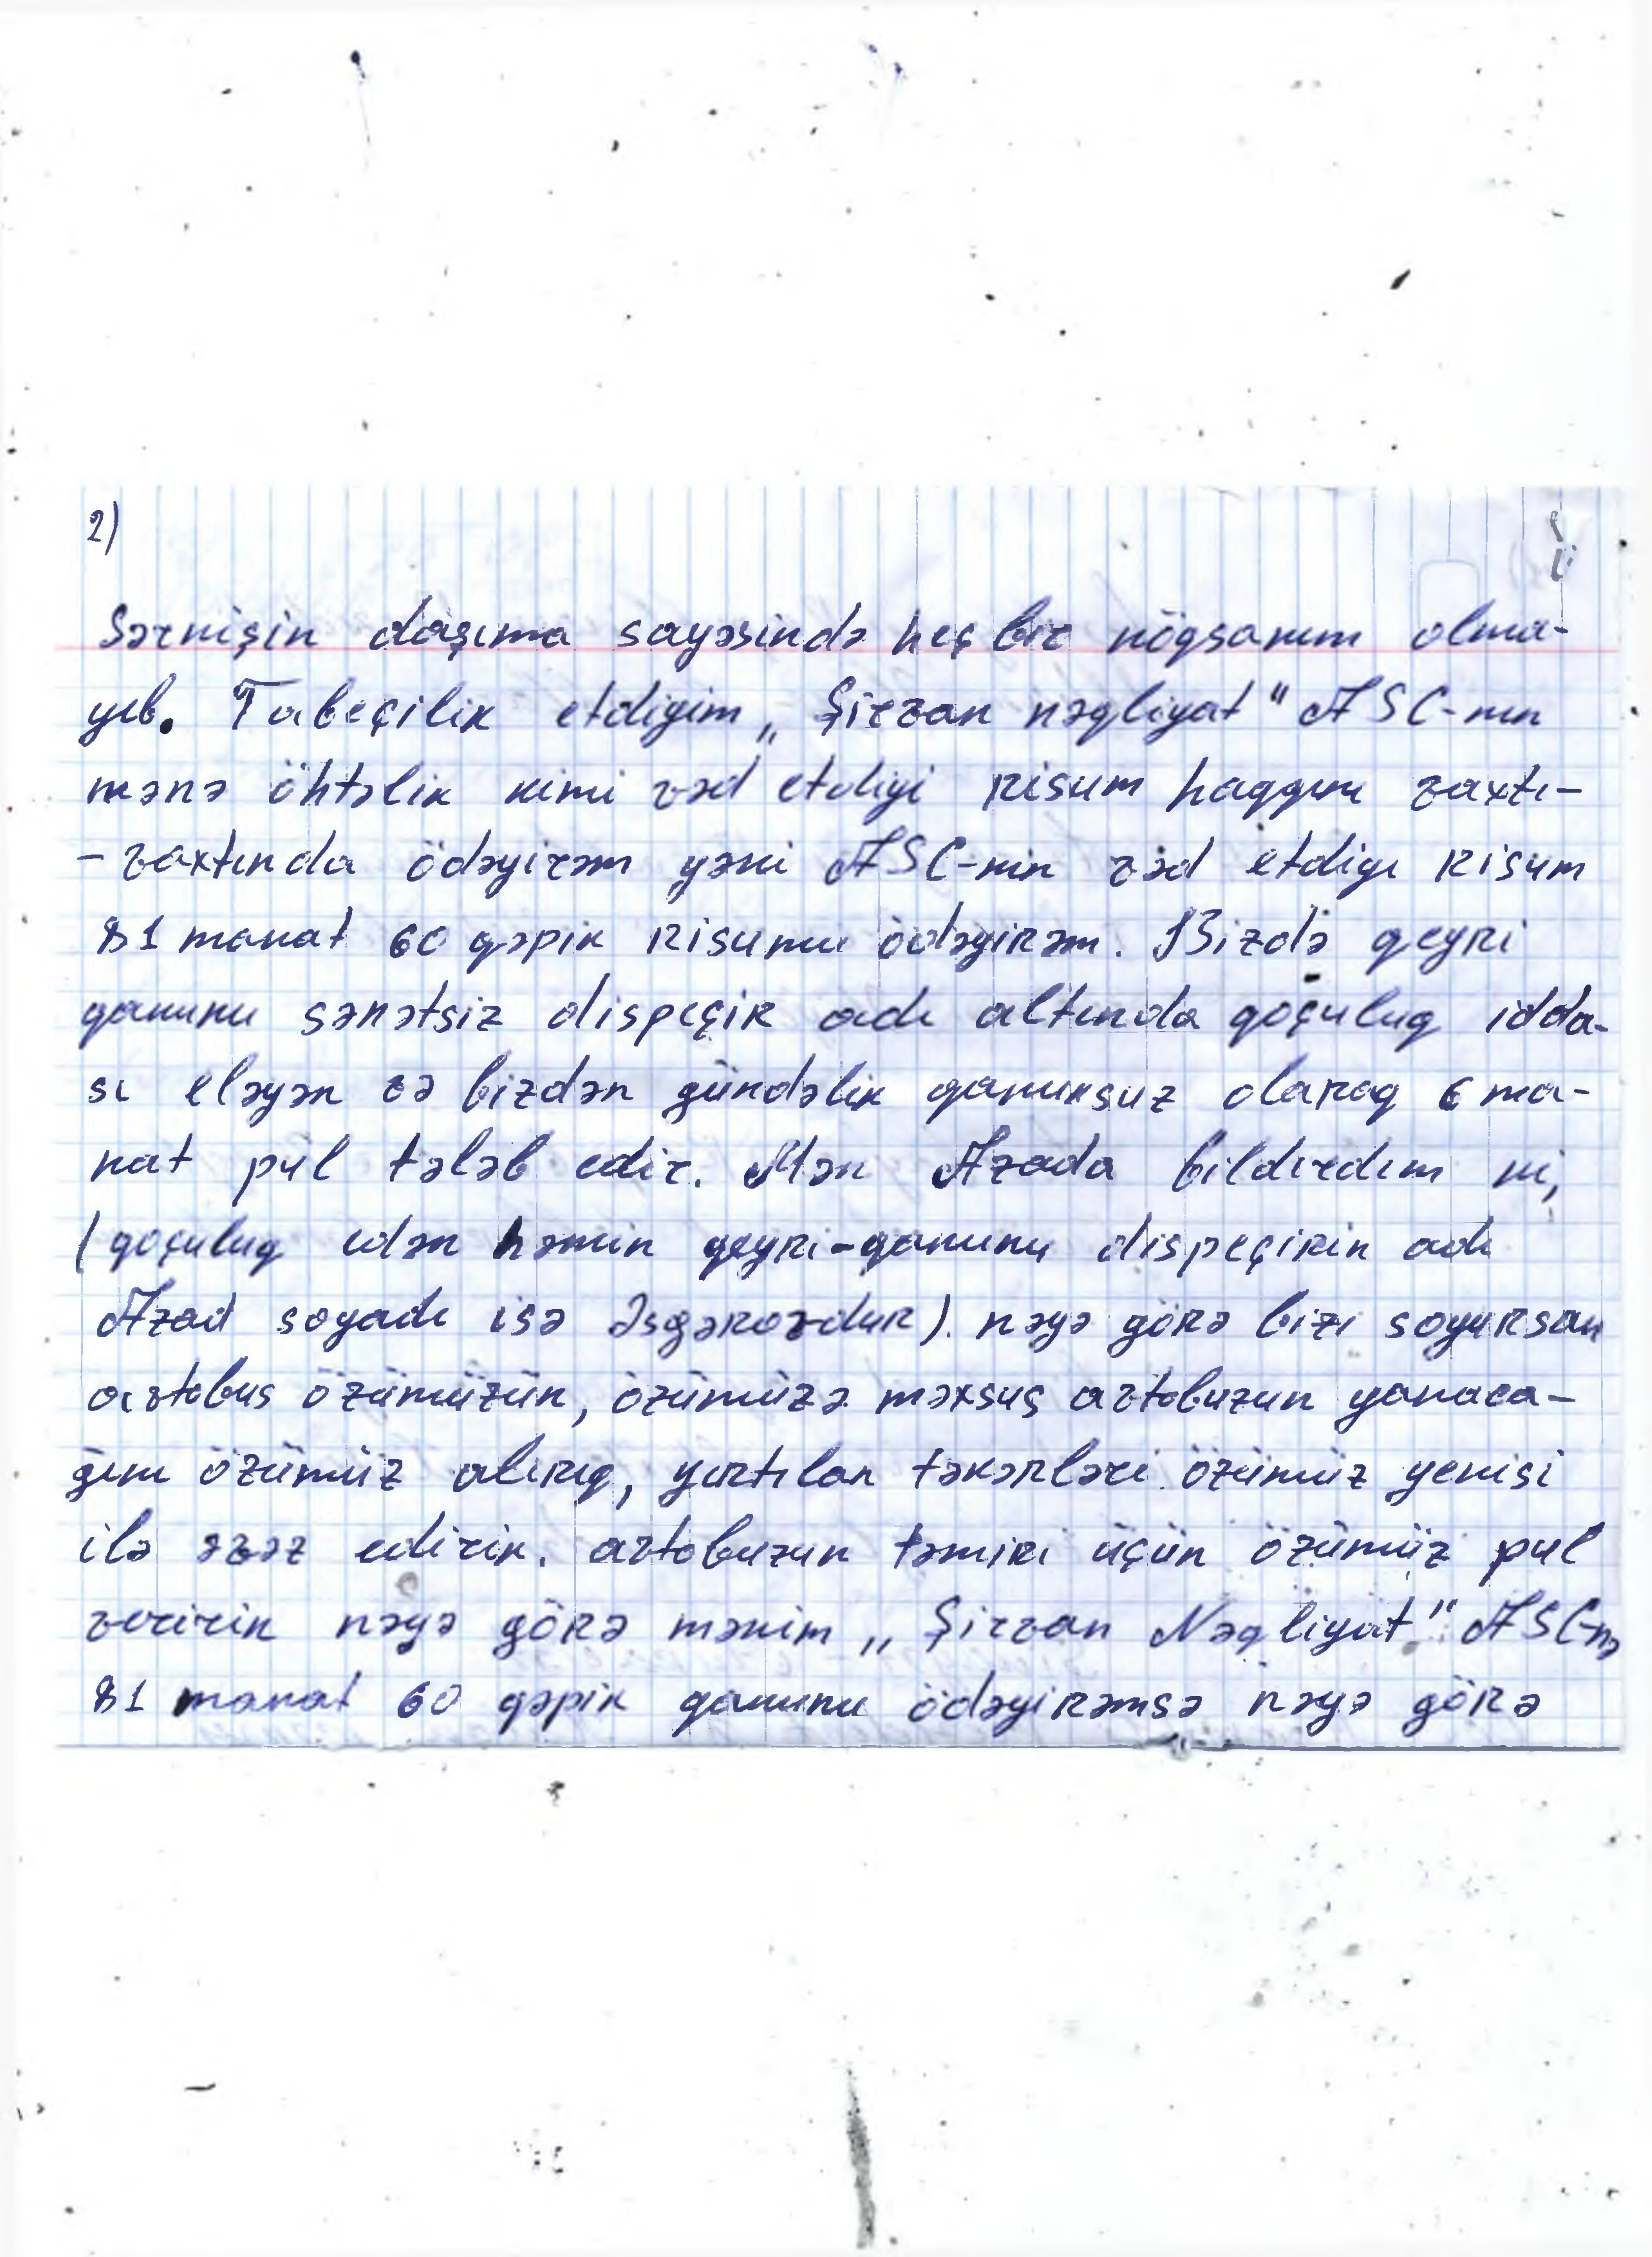 2)
Sərnişin daşıma sayəsində heç bir nögsanım olma-
yıb. Tabeçilik etdiyim „Şirvan nəqliyat" ASC-nın
mənə öhtəlik kimi vəd etdiyi risum haqqını vaxtı-
- vaxtında ödəyirəm yəni ASC-nin vəd etdigi risum
81 manat 60 qəpik risumu ödəyirəm. Bizdə qeyri
qanunu sənətsiz dispeçir adı altında qoçuluq idda-
sı eləyən və bizdən gündəlik qanunsuz olaraq 6 ma-
nat pul tələb edir. Mən Azada bildirdim ki,
(qoçuluq edən həmin qeyri-qanunu dispeçirin adı
Azad soyadı isə Əsgərovdur). nəyə görə bizi soyursan
avtobus özümüzün, özümüzə məxsus avtobuzun yanaca-
ğını özümüz alırıq, yırtılan təkərləri özümüz yenisi
ilə əvəz edirik. avtobuzun təmiri üçün özümüz pul
veririk nəyə görə mənim „Şirvan Nəqliyat" ASC-nə
81 manat 60 qəpik qanunu ödəyirəmsə nəyə görə